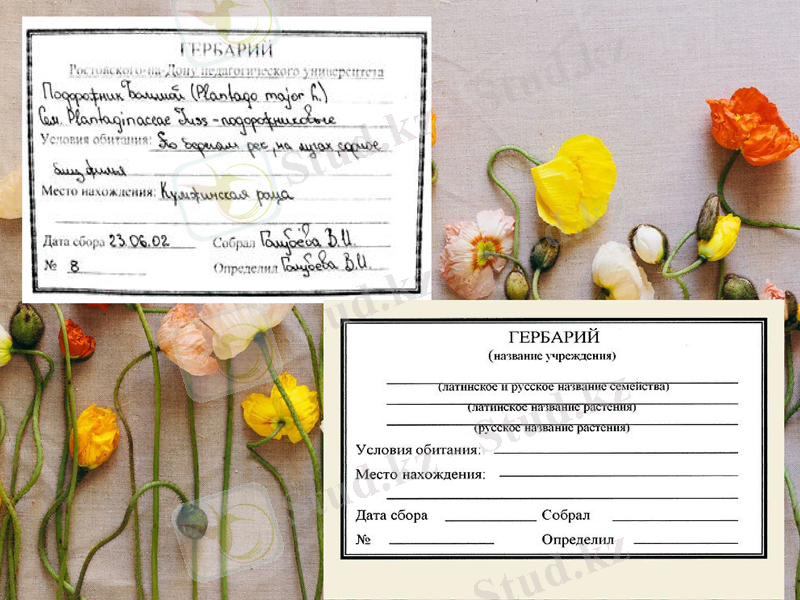 ГЕРБАРИЙ
Ростовского-на-Дону педагогического университета
Подорожник Большой (Plantago major L.)
Сем. Plantaginaceae Juss - подорожниковые
Условия обитания: По берегам рек, на лугах, сорное
близ жилья
Место нахождения: Кумженская роща
Дата сбора 23.06.02 Собрал Голубева В.И.
№ 8 Определил Голубева В.И.
ГЕРБАРИЙ
(название учреждения)
(латинское и русское название семейства)
(латинское название растения)
(русское название растения)
Условия обитания:
Место нахождения:
Дата сбора Собрал
№ Определил
Stud.kz
Stud.kz
Stud.kz
Stud.kz
Stud.kz
Stud.kz